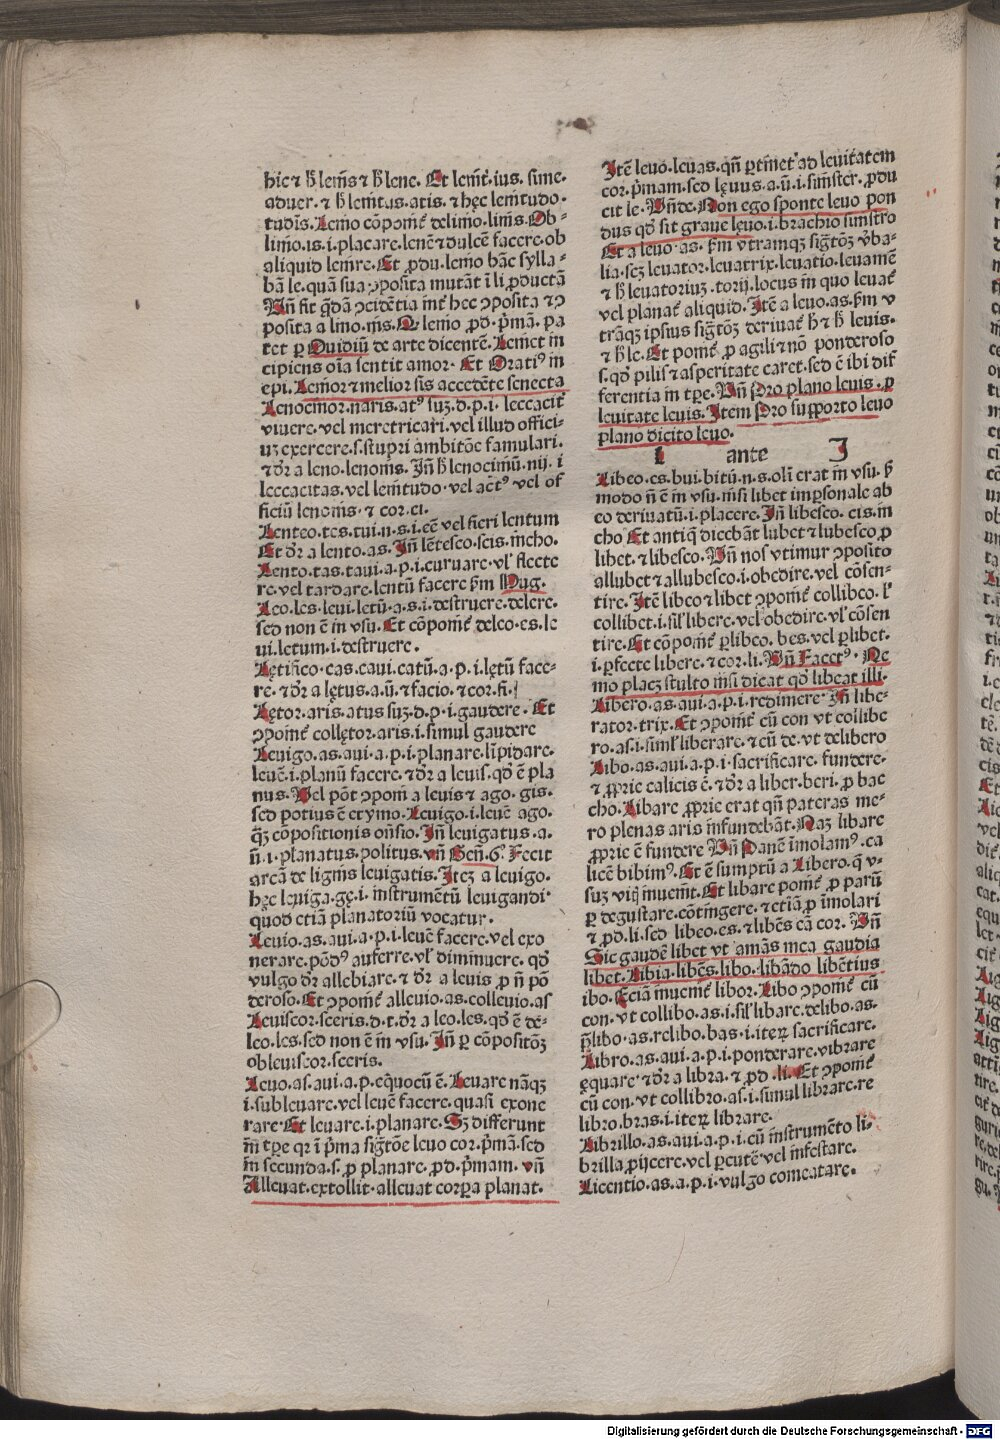 hic ⁊ h̄ lenis̄ ⁊ h̄ lene. Et lenit̄.ius. sime.
aduer. ⁊ h̄ lenitas.atis. ⁊ hęc lenitudo.
tudis̄. Lenio cōpoīt̄ delinio.linis̄. Ob-
linio.is.i.placare.lenē ⁊ dulcē facere.ob
aliquid lenire. Et ꝓdu.lenio hāc sylla-
bā le.quā sua ꝯposita mutāt ī li ꝓducta
Uñ fit q̄dā ꝯcidētia int̄ hec ꝯposita ⁊ ꝯ
posita a lino.nis̄. Q. lenio ꝓd.p̄mā. pa
tet ꝑ Ouidiū de arte dicentē. Leniet in
cipiens oīa sentit amor. Et Oratiꝰ in
epi. Lenior ⁊ melior sis accedēte senecta
Lenocinor.naris.atꝰ suʒ.d.p.i. leccacit̄
viuere.vel meretricari.vel illud offici-
uʒ exercere.s.stupri ambitōe famulari.
⁊ dr̄ a leno.lenonis̄. Iñ h̄ lenociniū.nij. i
leccacitas.vel lenitudo.vel actꝰ vel of
ficiū lenonis̄. ⁊ cor.ci.
Lenteo.tes.tui.n.s.i.eē vel fieri lentum
Et dr̄ a lento.as. Iñ lētesco.scis.incho.
Lento.tas.taui.a.p.i.curuare.vl̓ flecte
re.vel tardare.lentū facere ẜm Hug.
Leo.les.leui.letū.a.s.i.destruere.delere.
sed non ē in vsu. Et cōpoīt̄ deleo.es.le
ui.letum.i.destruere.
Lętifico.cas.caui.catū.a.p.i.lętū face-
re. ⁊ dr̄ a lętus.a.ū. ⁊ facio. ⁊ cor.fi.
Lętor.aris.atus suʒ.d.p.i.gaudere. Et
ꝯpoīt̄ collętor.aris.i.simul gaudere
Leuigo.as.aui.a.p.i.planare.līpidare.
leuē.i.planū facere. ⁊ dr̄ a leuis.qd̓ ē pla
nus. Vel pōt ꝯpoīt a leuis ⁊ ago. gis.
sed potius ē etymo. Leuigo.i.leuē ago.
q̄ʒ cōpositionis oñsio. Iñ leuigatus.a.
ū.i.planatus.politus. vñ Geñ.6. Fecit
arcā de lignis̄ leuigatis. Iteʒ a leuigo.
hęc leuiga.gę.i. instrumētū leuigandi.
quod etiā planatoriū vocatur.
Leuio.as.aui.a.p.i.leuē facere.vel exo
nerare.pōdꝰ auferre.vl̓ diminuere. qd̓
vulgo dr̄ allebiare. ⁊ dr̄ a leuis ꝓ ñ pō
deroso. Et ꝯpoīt̄ alleuio.as.colleuio.as
Leuiscor.sceris.d.t.dr̄ a leo.les.qd̓ ē de-
leo.les.sed non ē in vsu. Iñ ꝑ cōpositōʒ
obleuiscor.sceris.
Leuo.as.aui.a.p.eq̄uocū ē. Leuare nāqʒ
i.subleuare.vel leuē facere.quasi exone
rare. Et leuare.i.planare. Sʒ differunt
in tꝑe qr̄ i p̄ma sigt̄ōe leuo cor.p̄mā.sed
in secunda.s.ꝓ planare.ꝓd.p̄mam. vñ
Alleuat.extollit.alleuat corꝑa planat.
Itē leuo.leuas.qñ ꝑtinet ad leuitatem
cor.p̄mam.sed lęuus.a.ū.i.sinister.ꝓdu
cit le. Uñde. Non ego sponte leuo pon
dus qd̓ sit graue lęuo.i.brachio sinistro
Et a leuo.as. ẜm vtramqʒ sigt̄ōʒ v̓ba-
lia.scʒ leuator.leuatrix.leuatio.leuamē
⁊ h̄ leuatoriuʒ.torij.locus in quo leuat̄
vel planat̄ aliquid. Itē a leuo.as.ẜm v
trāqʒ ipsius sigt̄ōʒ deriuat̄ h̄ ⁊ h̄ leuis.
⁊ h̄ le. Et ponit̄ ꝓ agili ⁊ nō ponderoso
s.qd̓ pilis ⁊ asperitate caret.sed ē ibi dif
ferentia in tꝑe. Uñ Pro plano leuis.ꝑ
leuitate leuis. Item Pro supporto leuo
plano dicito leuo.
L ante I
Libeo.es.bui.bitū.n.s.oli erat in vsu. ẜ
modo ñ ē in vsu.nisi libet imꝑsonale ab
eo deriuatū.i.placere. Iñ libesco. cis.in
cho Et antiq̓ dicebāt lubet ⁊ lubesco ꝓ
libet. ⁊ libesco. Uñ nos vtimur ꝯposito
allubet ⁊ allubesco.i.obedire.vel cōsen-
tire. Itē libeo ⁊ libet ꝯpoīt̄ collibeo. l̓
collibet.i.sil̓ libere.vel obedire.vl̓ cōsen
tire. Et cōpoīt̄ ꝑlibeo. bes.vel ꝑlibet.
i.ꝑfecte libere. ⁊ cor.li. Uñ Facetꝰ. Ne
mo placʒ stulto nisi dicat qd̓ libeat illi.
Libero.as.aui.a.p.i.redimere. Iñ libe-
rator.trix. Et ꝯpoīt̄ cū con vt collibe
ro.as.i.simł liberare. ⁊ cū de. vt delibero
Libo.as.aui.a.p.i.sacrificare. fundere.
⁊ ꝓprie calicis ē. ⁊ dr̄ a liber.beri.ꝓ bac
cho. Libare ꝓprie erat qñ pateras me-
ro plenas aris infundebāt. Naʒ libare
ꝓprie ē fundere Uñ Panē imolamꝰ.ca
licē bibimꝰ. Et ē sumptū a Libero.q̓ v-
suʒ viij inuenit. Et libare ponit̄ ꝓ parū
ꝑ degustare.cōtingere. ⁊ etiā ꝓ imolari
⁊ ꝓd.li.sed libeo.es. ⁊ libēs eā cor. Uñ
Sic gaudē libet vt amās mea gaudia
libet. Libia.libēs.libo.libādo libētius
ibo. Eciā inuenit̄ libor. Libo ꝯpoīt̄ cū
con.vt collibo.as.i.sil̓ libare.delibo.as.
p̄libo.as.relibo.bas.i.iteꝝ sacrificare.
Libro.as.aui.a.p.i.ponderare.vibrare
ęquare ⁊ dr̄ a libra. ⁊ ꝓd.li. Et ꝯpoīt̄
cū con.vt collibro.as.i.simul librare.re
libro.bras.i.iteꝝ librare.
Librillo.as.aui.a.p.i.cū instrumēto li-
brilla ꝓijcere.vel ꝑcutē vel infestare.
Licentio.as.a.p.i.vulgo comeatare.
Digitalisierung gefördert durch die Deutsche Forschungsgemeinschaft - DFG